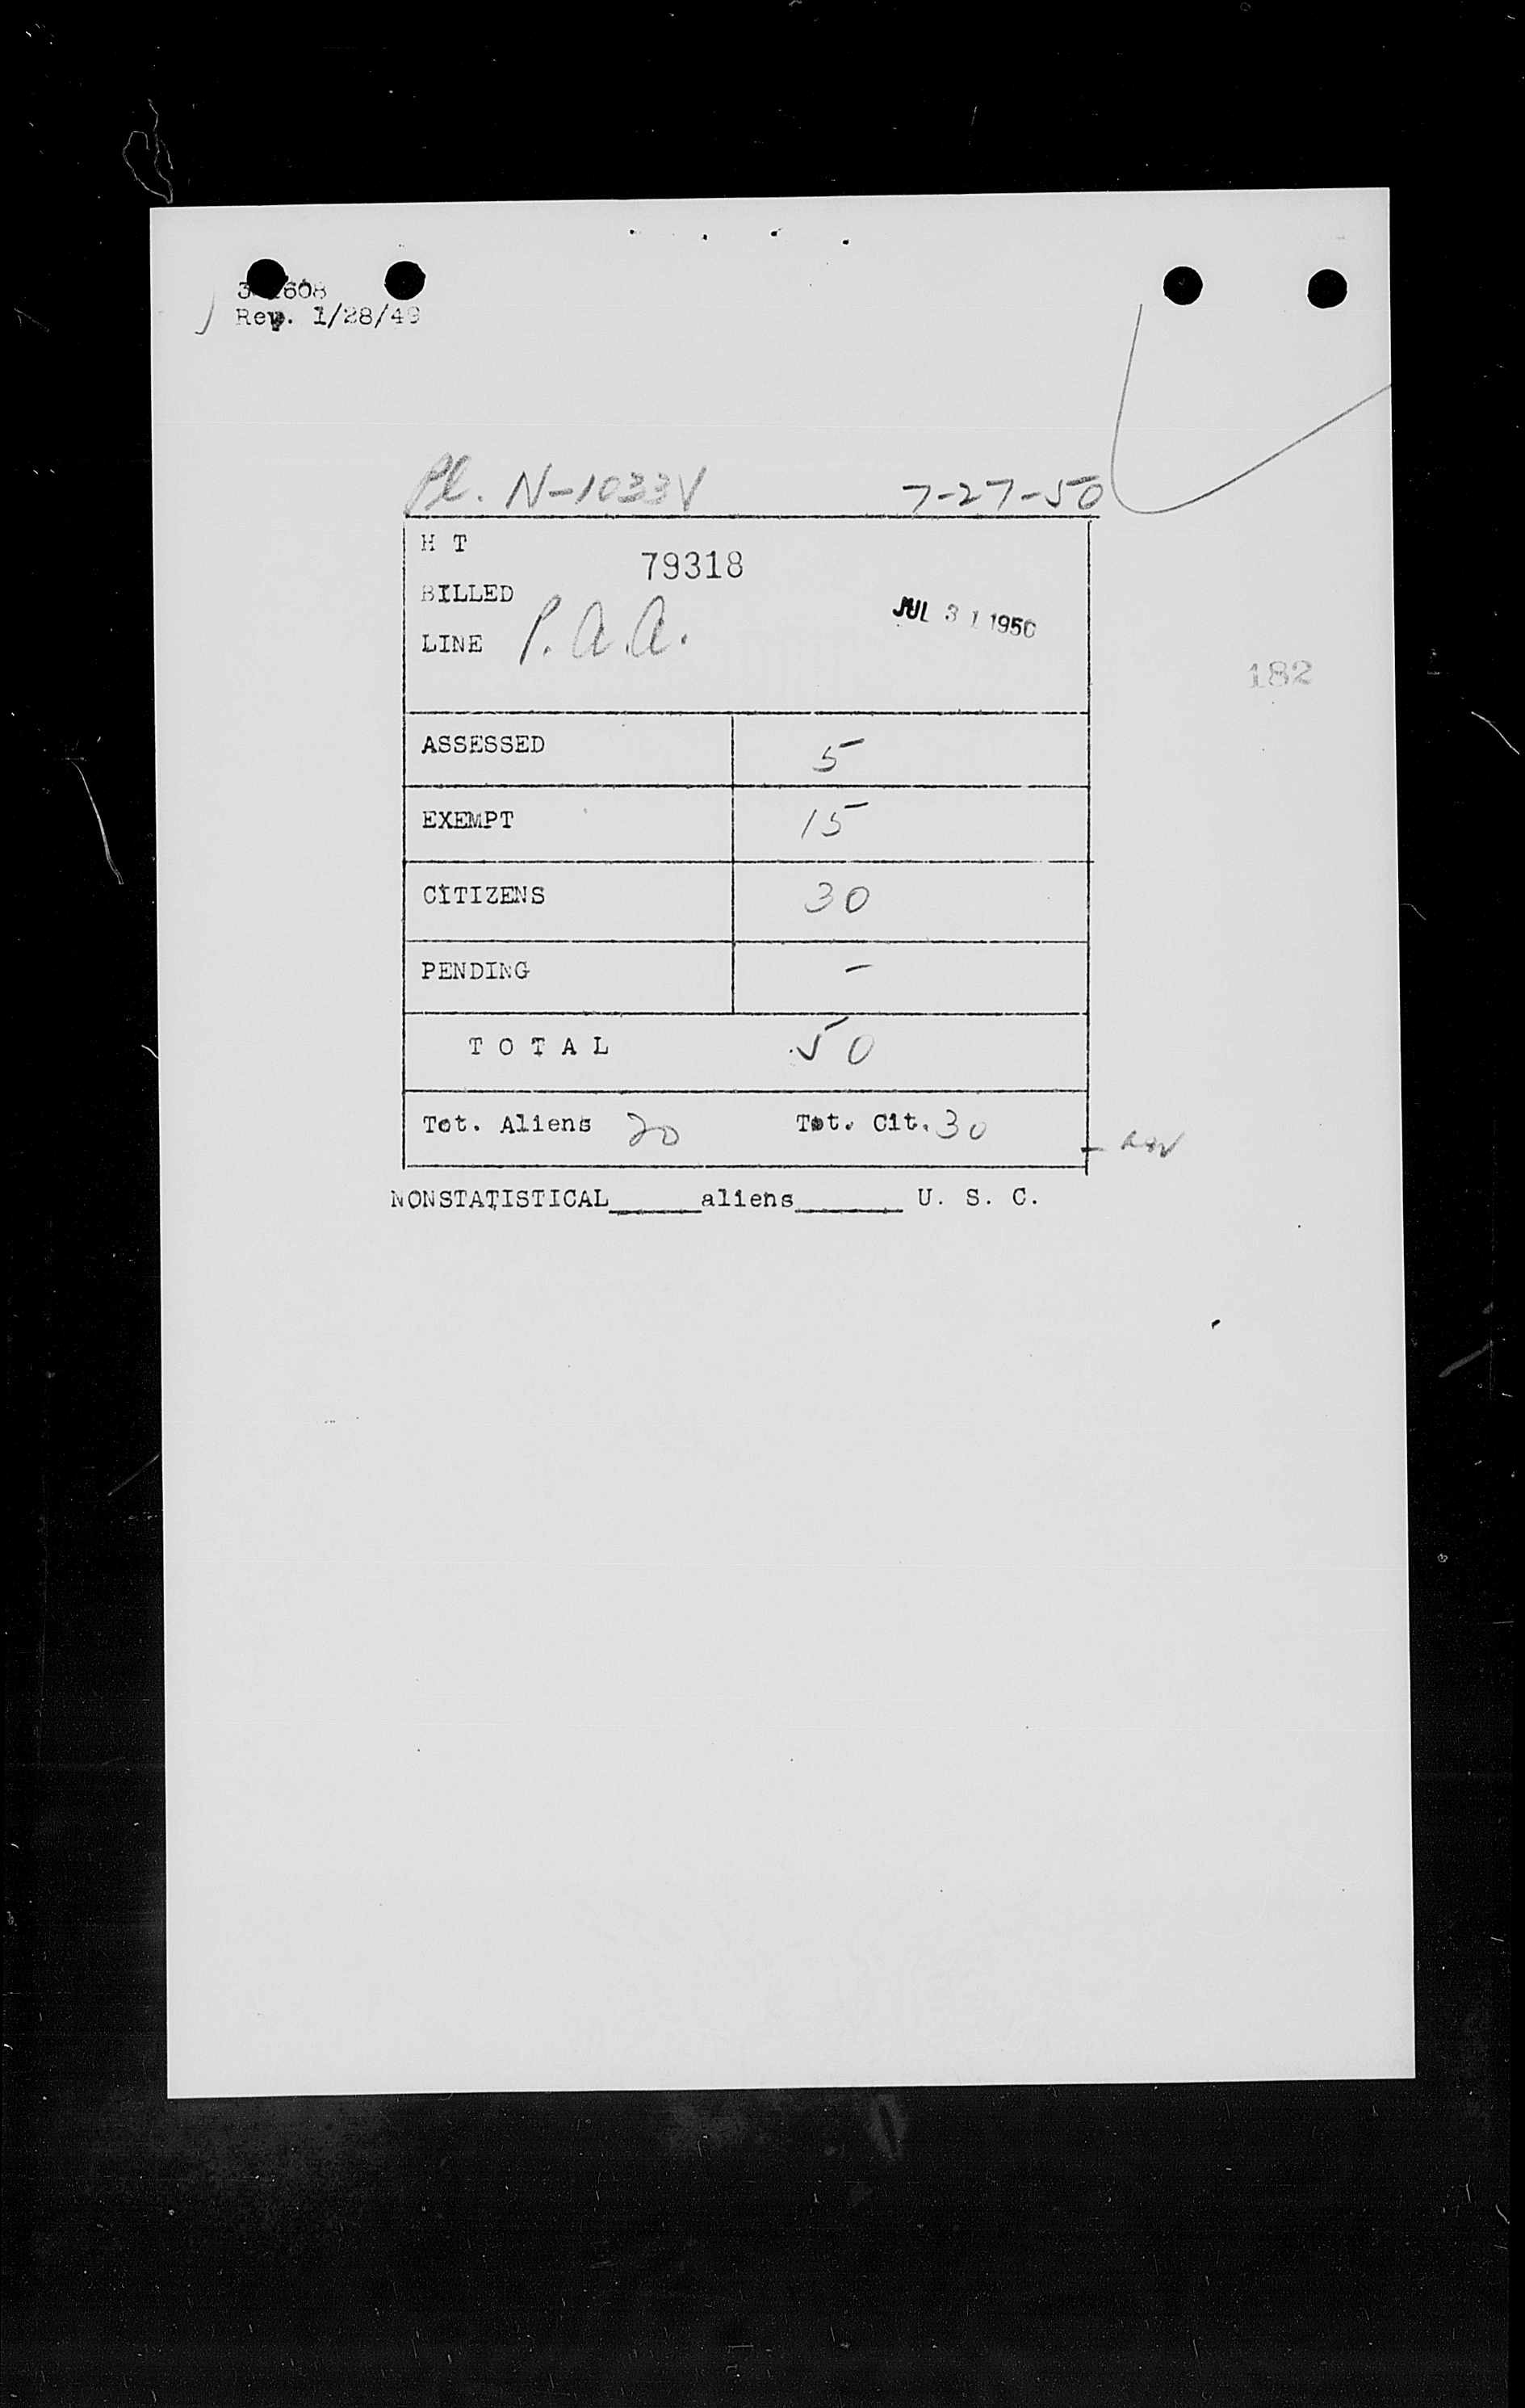 Rev. 1/28/49
Pl. N-1033V 7-27-50
H T
79318
BILLED
JUL 31 1950
LINE P.A.A.
182
ASSESSED 5
EXEMPT 15
CITIZENS 30
PENDING -
T O T A L 50
Tot. Aliens 20 Tot. Cit. 30
NONSTATISTICAL_____aliens______ U. S. C.